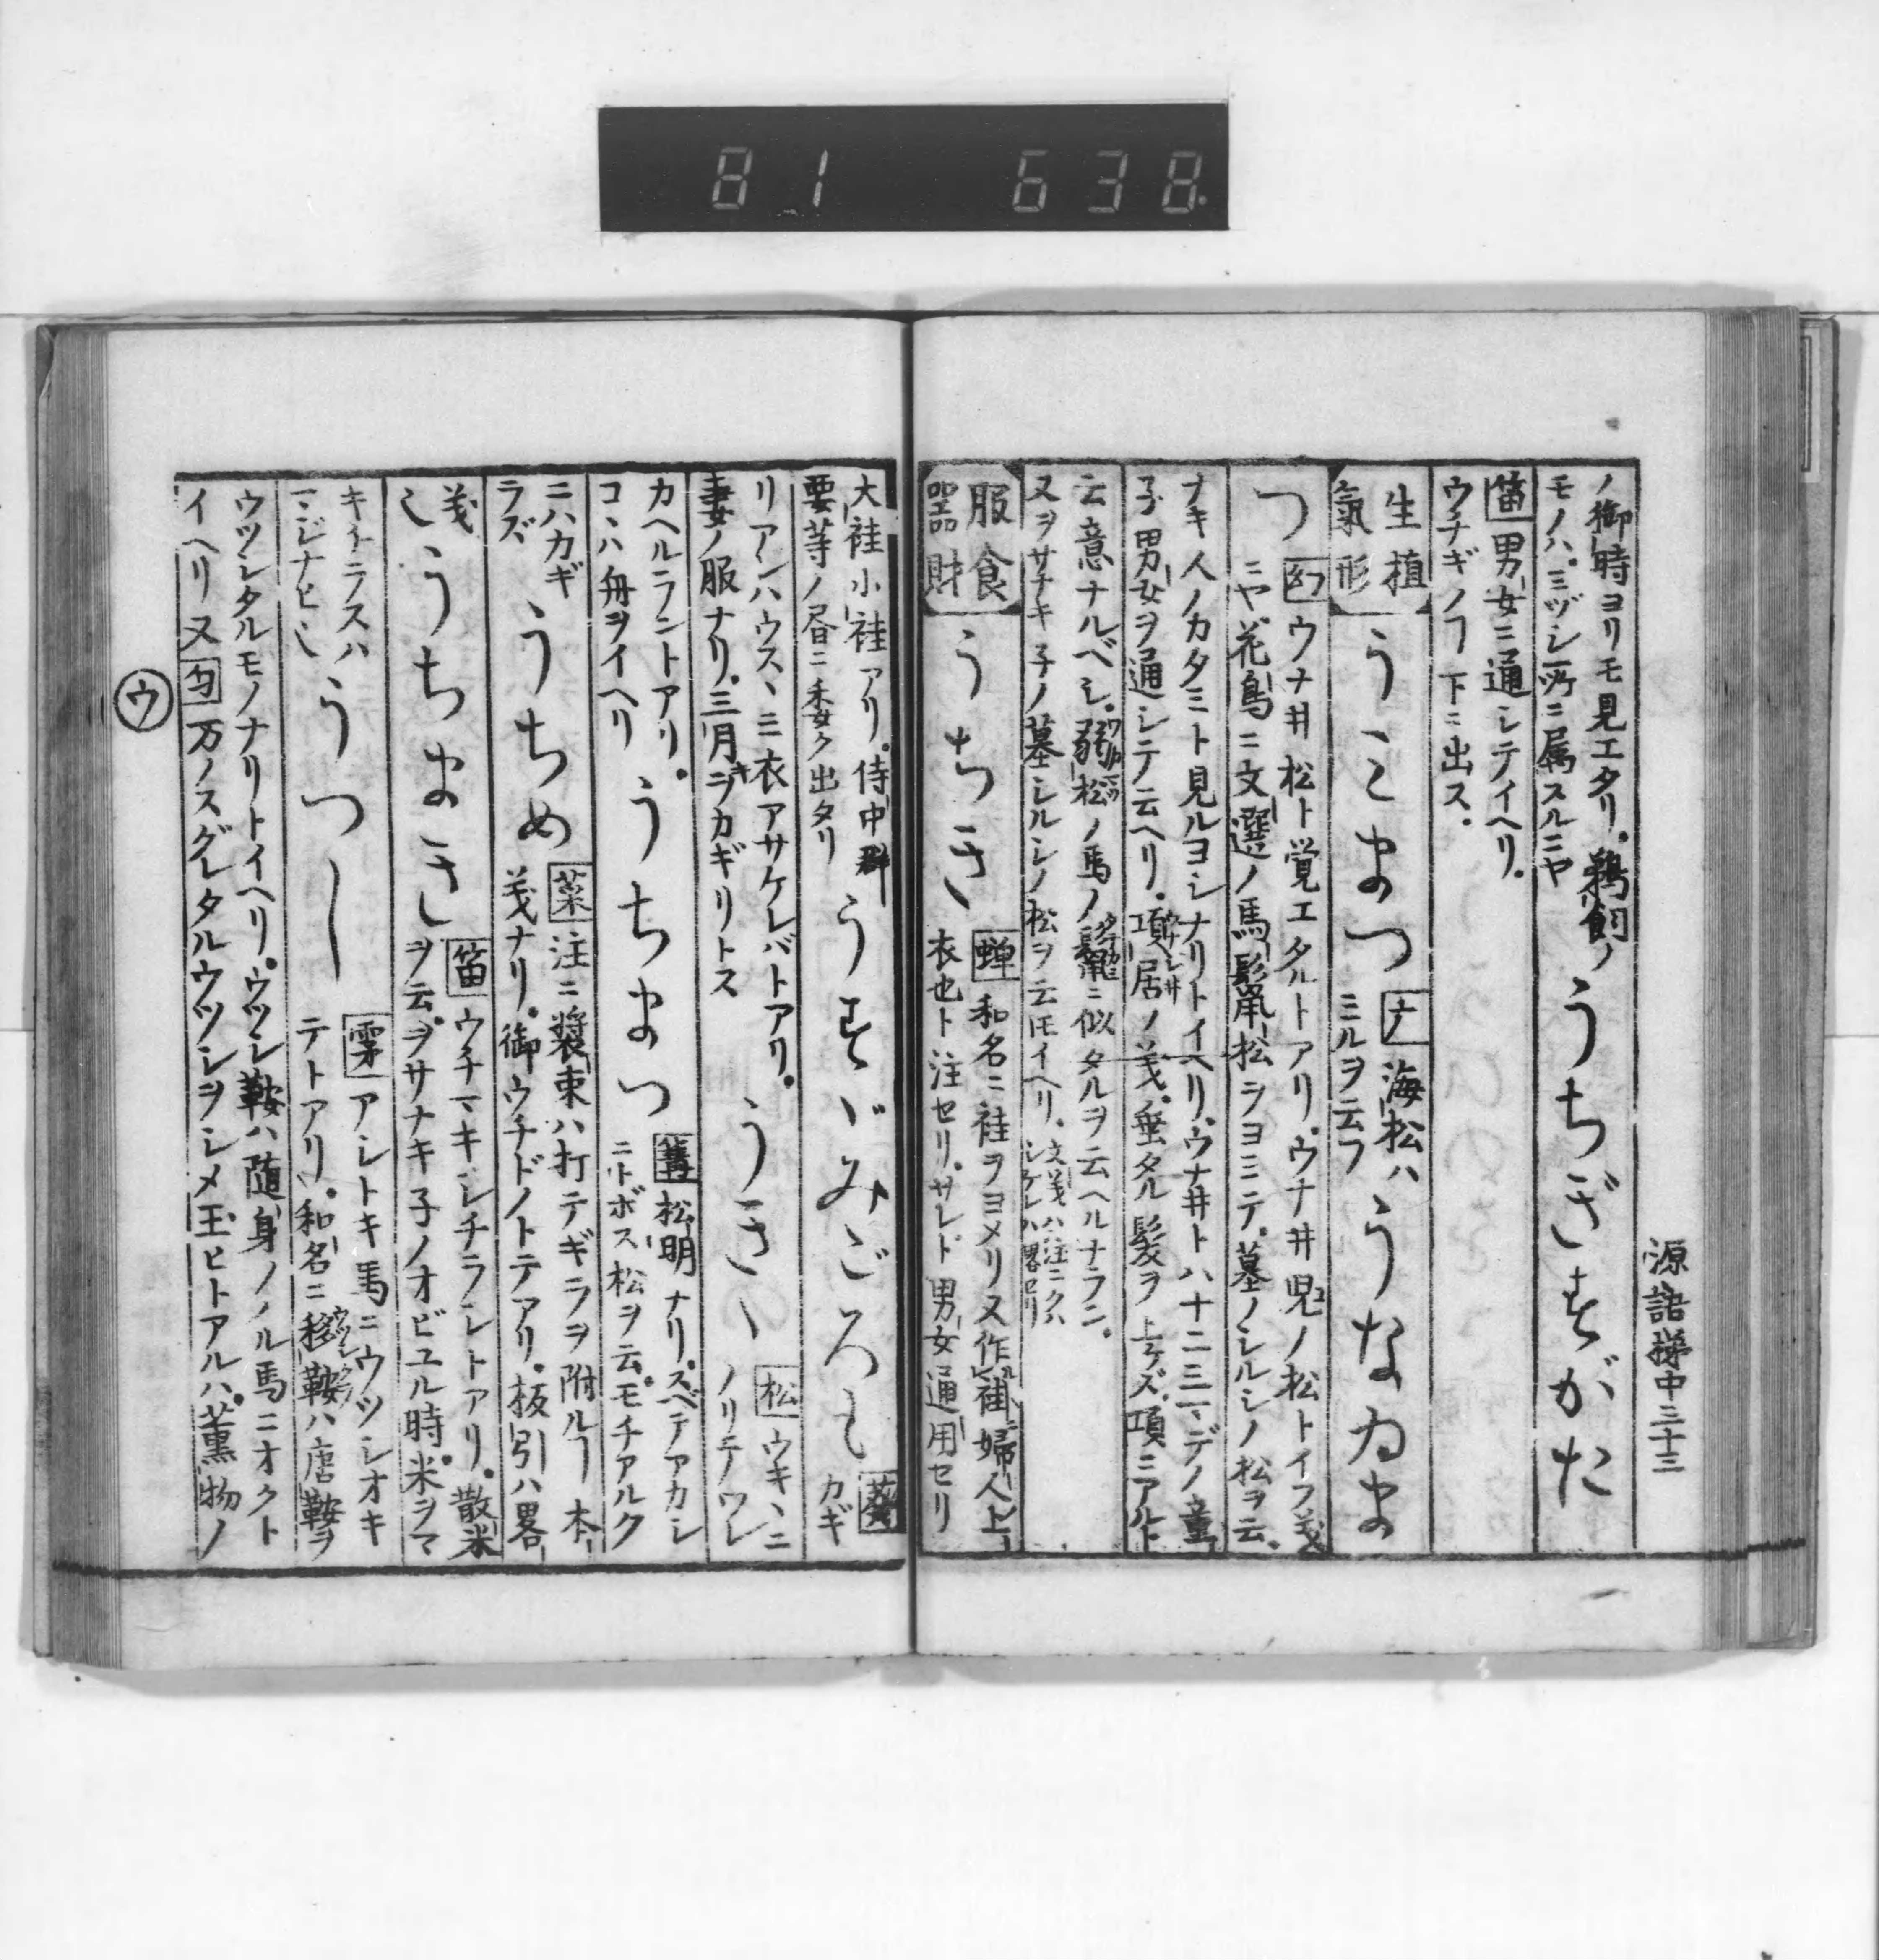 81 638
源語梯中三十三
ノ御時ヨリモ見エタリ。鵜飼ノ
モノハ。ミヅシ所ニ属スルニヤ
うちぎすがた
笛 男女ニ通シテイヘリ。
ウチギノ下ニ出ス.
生植
氣形
うみまつ
ナ 海松ハ
ミルヲ云フ
うなゐま
つ
幻 ウナ井松ト覚エタルトアリ。ウナ井児ノ松トイフ義
ニヤ花鳥ニ文選ノ馬鬣松ヲヨミテ。墓ノシルシノ松ヲ云。
ナキ人ノカタミト見ルヨシナリトイヘリ。ウナ井トハ十二三マデノ童
子男女ヲ通シテ云ヘリ。項居ノ義。垂タル髪ヲ上ゲズ。項ニアルト
云意ナルベシ。弱松ノ馬ノ鬣ニ似タルヲ云ヘルナラン。
又ヲサナキ子ノ墓シルシノ松ヲ云トモイヘリ。
服食
器財
うちき
蝉 和名ニ袿ヲヨメリ又作褂婦人上
衣也ト注セリ。サレド男女通用セリ
大袿小袿アリ。侍中群
要等ノ昼ニ委ク出タリ
うすゞみごろも
葵 カギ
リアレハウスヽニ衣アサケレバトアリ。
妻ノ服ナリ。三月ニカギリトス
うきゝ
松 ウキヽニ
ノリテワレ
カヘルラントアリ。
コヽハ舟ヲイヘリ
うちまつ
篝 松明ナリ。スベテアカシ
ニトボス松ヲ云。モチアルク
ニハカギ
ラズ
うちめ
菜 注ニ装束ハ打テギラヲ附ルヿ本
義ナリ。御ウチドノトテアリ。板引ハ畧
義
也
うちまきし
笛 ウチマキシチラシトアリ。散米
ヲ云。ヲサナキ子ノオビユル時。米ヲマ
キチラスハ
マジナヒ也
うつし
雲 アシトキ馬ニウツシオキ
テトアリ。和名ニ移鞍ハ唐鞍ヲ
ウツシタルモノナリトイヘリ。ウツシ鞍ハ随身ノノル馬ニオクト
イヘリ又 匂 万ノスグレタルウツシヲシメ玉ヒトアルハ。薫物ノ
ウ